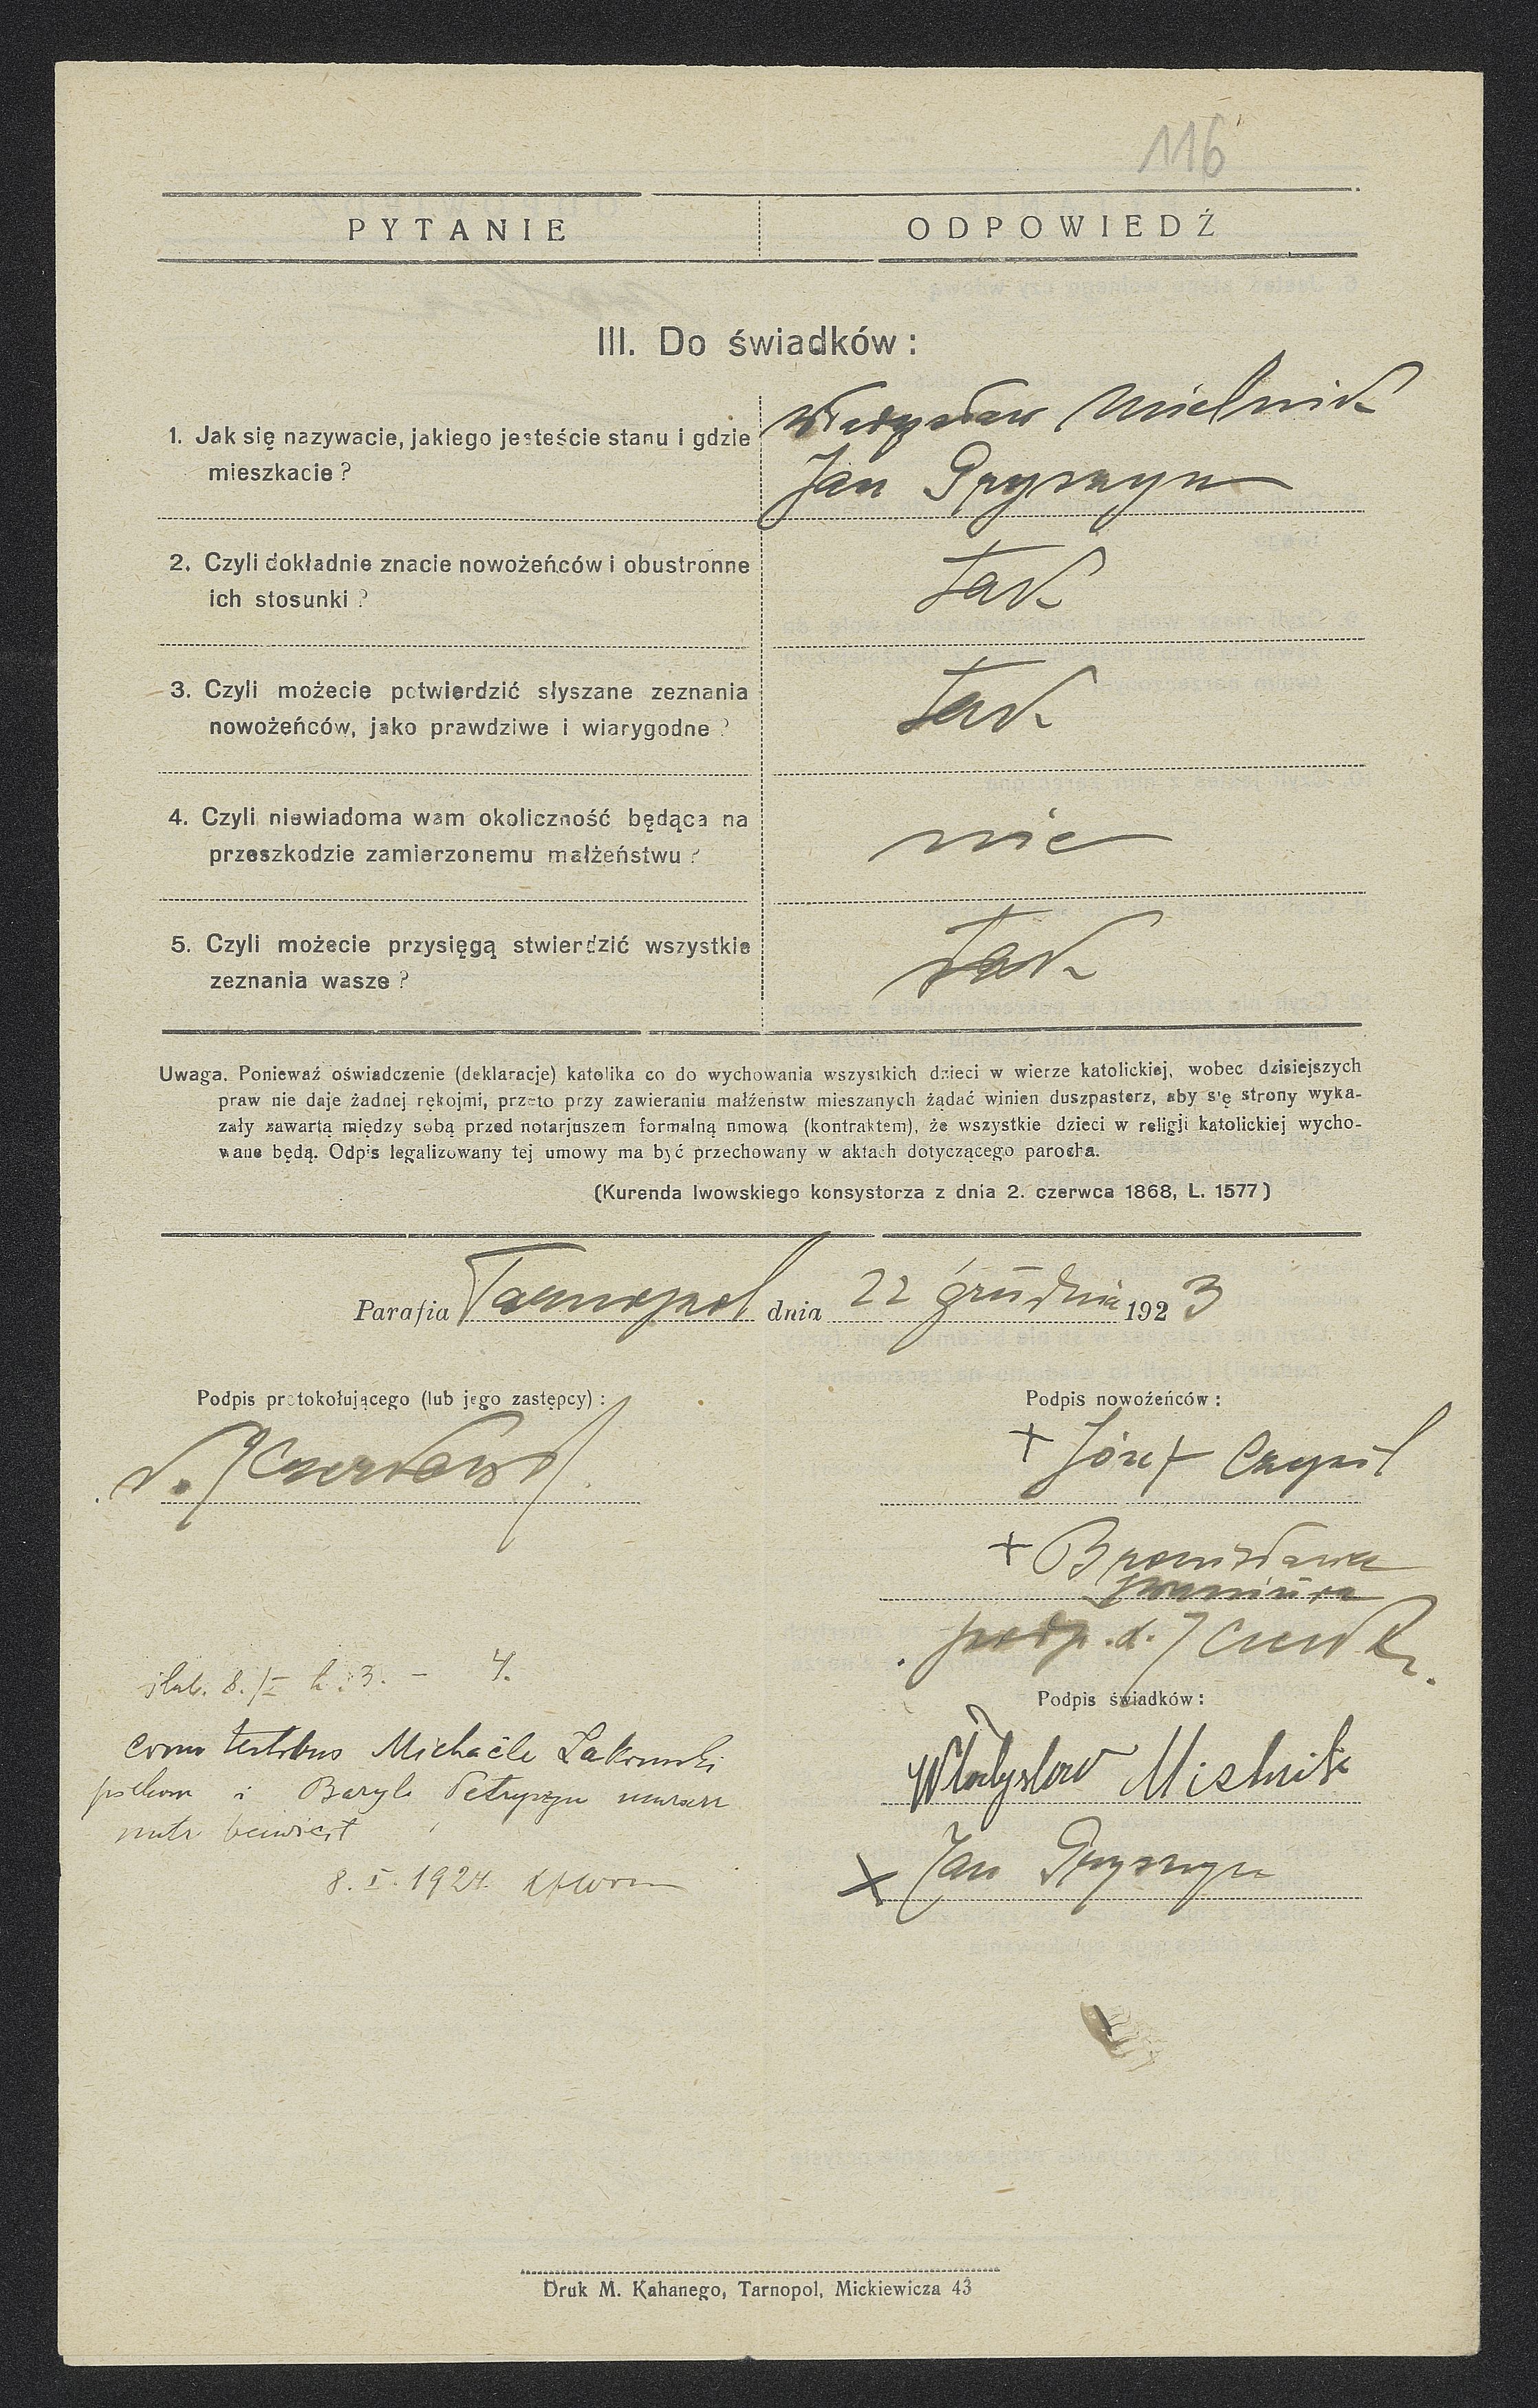 116
PYTANIE ODPOWIEDŹ
III. Do świadków:
1. Jak się nazywacie, jakiego jesteście stanu i gdzie
mieszkacie?
Władysław Mielnik
Jan Gryszczyn
2. Czyli dokładnie znacie nowożeńców i obustronne
ich stosunki?
tak
3. Czyli możecie potwierdzić słyszane zeznania
nowożeńców, jako prawdziwe i wiarygodne?
tak
4. Czyli niewiadoma wam okoliczność będąca na
przeszkodzie zamierzonemu małżeństwu?
nie
5. Czyli możecie przysięgą stwierdzić wszystkie
zeznania wasze?
tak
Uwaga. Ponieważ oświadczenie (deklaracje) katolika co do wychowania wszystkich dzieci w wierze katolickiej, wobec dzisiejszych
praw nie daje żadnej rękojmi, przeto przy zawieraniu małżeństw mieszanych żądać winien duszpasterz, aby się strony wyka-
zały zawartą między sobą przed notarjuszem formalną nmową (kontraktem), że wszystkie dzieci w religji katolickiej wycho-
wane będą. Odpis legalizowany tej umowy ma być przechowany w aktach dotyczącego parocha.
(Kurenda lwowskiego konsystorza z dnia 2. czerwca 1868, L. 1577)
Parafia Tarnopol dnia 22 grudnia 1923
Podpis protokołującego (lub jego zastępcy):
Podpis nowożeńców:
+ Józef
+ Bronisława
podp.
8. I 3. - 4.
Podpis świadków:
Michaële
Władysław Mielnik
i
x Jan
8. I. 1924.
Druk M. Kahanego, Tarnopol, Mickiewicza 43